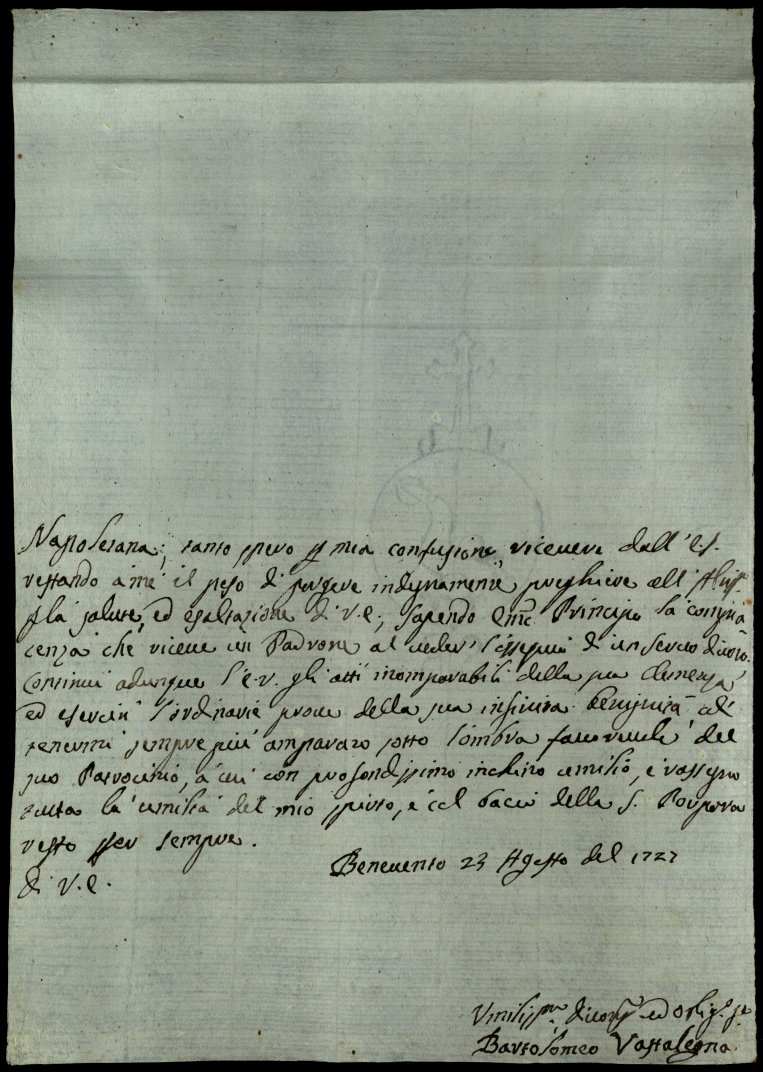 Napoletana; tanto spero p mia confusione, riceuere dall' E.V.
restando à me il peso di porgere indegnamente preghiere all' Altiss.
p la salute, ed esaltazione di V.E.; sapendo Em̃. Principe la compia
cenza che riceue un Padrone al ueder l'ossequio di un Seruo diuoto.
Continui adunque l'E.V. gli atti incomparabili della sua Clemenza,
ed eserciti l'ordinarie proue della sua infinita benignità al
tenermi sempre più amparato sotto l'ombra fauoreuole del
suo Patrocinio, à cui con profondissimo inchino umilio, e rassegno
tutta la umiltà del mio spirito, e col bacio della S. Porpora
resto per sempre.
Beneuento 23 Agosto del 1727
di V.E.
Vmiliss.mo diuotiss. ed oblig. se.
Bartolomeo Vassalegna